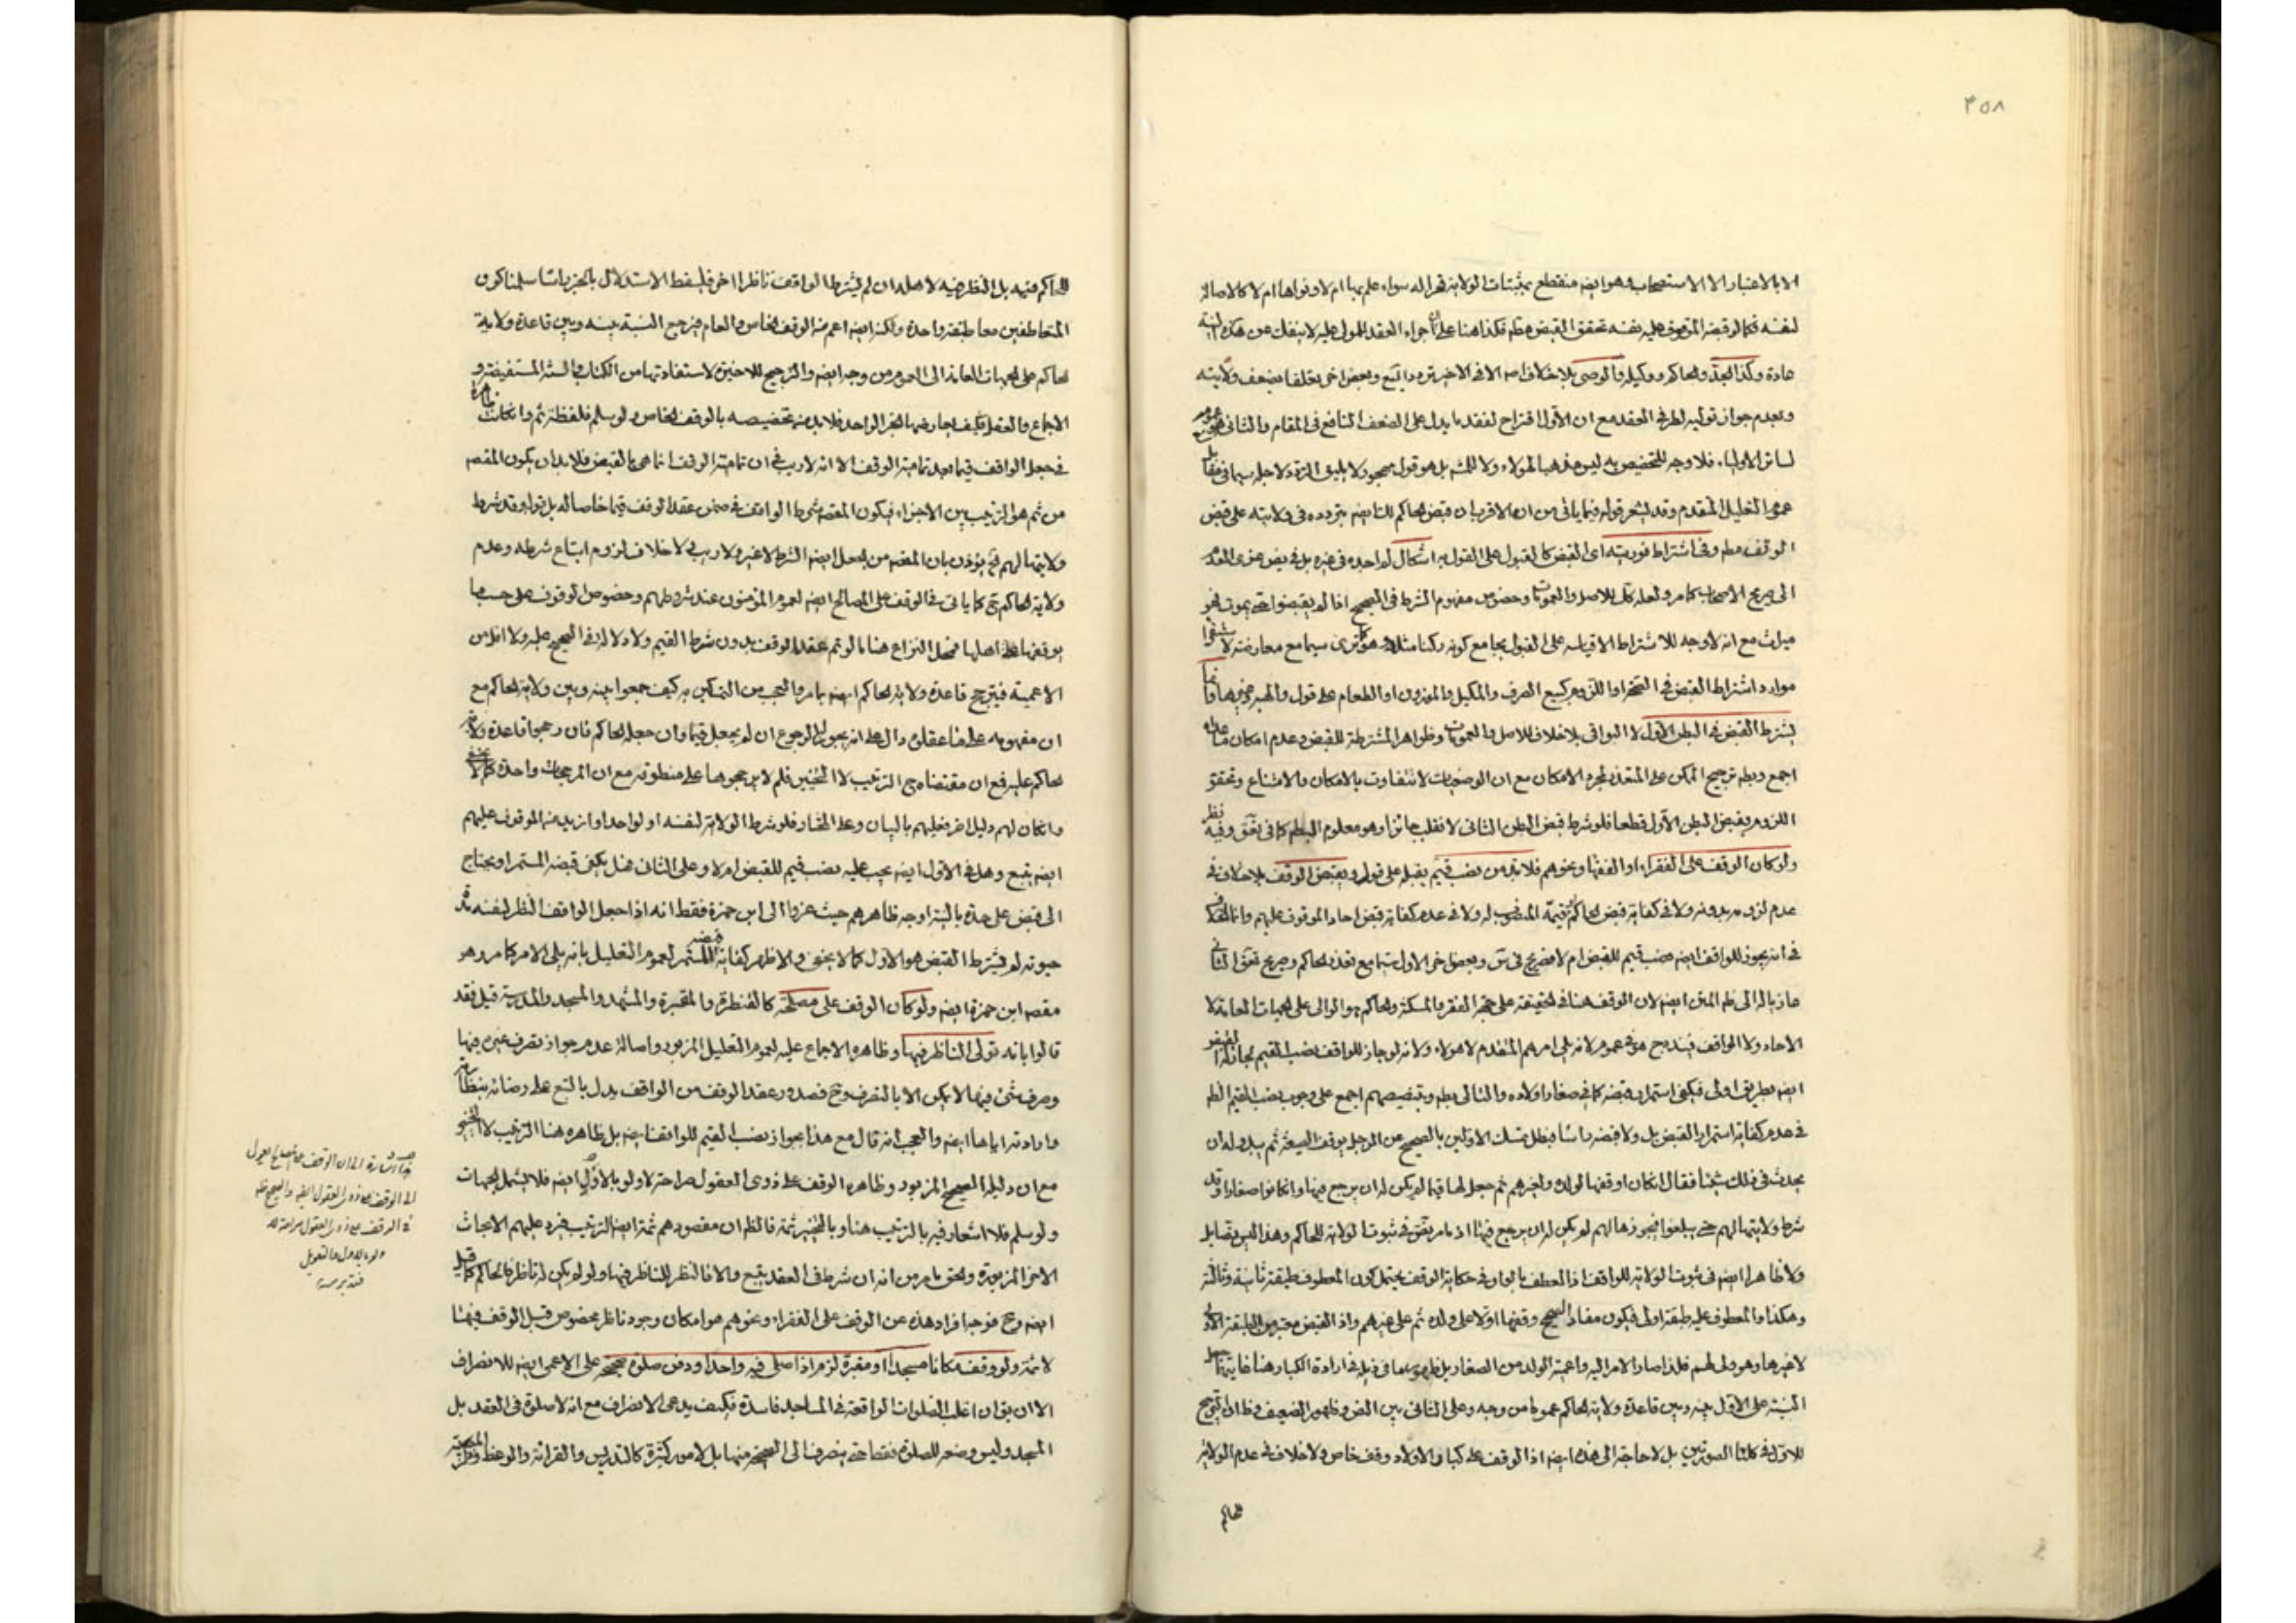 ٣٥٨
الا بالاعتبار الا الاستصحاب وهو ايضا منقطع بمثبتات الولاية قهرا له سواء علم بها ام لا ونواها ام لا كالاصالة
لنفسه فكما لو قبضه الموقوف عليه بنفسه تحقق القبض مطم فكذا هنا على اجراء العقد للمولى عليه لا ينفك عن هذه النية
عادة وكذا الجد والحاكم ووكيله والوصى بلا خلاف الا فى الاخير تردد وبعض اخر بضعف ولايته
وبعدم جواز توليه لطرفى العقد مع ان الاول اقتراح لفقد ما يدل على الضعف النافع فى المقام والثانى
لسائر الاولياء فلا وجه للتخصيص به ليس مذهبا لهؤلاء ولا للمشه بل هو قول مهجور ولا يليق التردد لاجله سيما فى مقابل
عموم التعليل المتقدم وقد يشعر قوله فيما ياتى من ان الاقرب ان قبض الحاكم كك ايضا بتردده فى ولايته على قبض
الوقف مطم وفى اشتراط فوريته اى القبض كالقبول على القول به اشكال لم اجده فى غيره بل فى بعض
الى صريح الاصحاب كما مر ولعله كك للاصل والعمومات وخصوص مفهوم الشرط فى الصحيح اذا لم يقبضوا حتى يموت فهو
ميراث مع انه لا وجه للاشتراط الا قياسه على القبول بجامع كونه ركنا مثله وهو كما ترى سيما مع معارضته
موارد اشتراط القبض فى الصحة او اللزوم كبيع الصرف والمكيل والموزون او الطعام على قول والهبه وغيرها وانما
يشترط القبض فى البطن الاول لا البواقى بلا خلاف للاصل والعمومات وظواهر المشترطة للقبض وعدم امكان
اجمع وبطه ترجيح الممكن على المتعذر بمجرد الامكان مع ان الوضعيات لا تتفاوت بالامكان والامتناع وتحقق
اللزوم بقبض البطن الاول قطعا فلو شرط قبض البطن الثانى لانقلب جائزا وهو معلوم البطم كما فى وفيه نظر
ولو كان الوقف على الفقراء او الفقهاء ونحوهم فلا بد من نصب قيم يقبله على قول ويقبض الوقف بلا خلاف فى
عدم لزومه بدونه ولا فى كفاية قبض الحاكم وقيمه المنصوب له ولا فى عدم كفاية قبض احاد الموقوف عليهم وانما الخلاف
فى انه يجوز للواقف ايضا نصب قيم للقبض ام لا فصريح وبعض اخر الاول سيما مع تعذر الحاكم وصريح الثانى
عازيا له الى ظم المتن ايضا لان الوقف هنا فى الحقيقة على جهة الفقر والمسكنة والحاكم هو الوالى على الجهات العامة لا
الاحاد ولا الواقف فيندرج هو فى عموم لانه يلى امرهم المتقدم لا هؤلاء ولانه لو جاز للواقف نصب القيم لجاز له
ايضا بطريق اولى فيكفى استمرار قبضه كما فى صغار اولاده والتالى بطه وتخصيصهم اجمع على وجوب نصب القيم
فى عدم كفاية استمرار القبض بل ولا قبضه راسا فبطل تمسك الاولين بالصحيح عن الرجل يوقف الضيعة ثم يبدو له ان
يحدث فى ذلك شيئا فقال ان كان اوقفها لولده ولغيرهم ثم جعل لها قيما لم يكن له ان يرجع فيها وان كانوا صغارا وقد
شرط ولايتها لهم حتى يبلغوا فيحوزها لهم لم يكن له ان يرجع فيها اذ ما مر يقتضى ثبوت الولاية للحاكم وهذا ليس بقابل
ولا ظاهرا ايضا فى ثبوت الولاية للواقف اذ العطف بالواو فى حكاية الوقف يحتمل كون المعطوف طبقة ثانية وثالثة
وهكذا والمعطوف عليه طبقة اولى فيكون مفاد الصحيح وقفها اولا على ولده ثم على غيرهم واذ القبض معتبر من الطبقة الاولى
لا غيرها وهو ولى لهم فلذا صار الامر اليه واعمية الولد من الصغار فى ذيله فى ارادة الكبار هنا غايته
النسبة على الاول بينه وبين قاعدة ولاية الحاكم عموما من وجه وعلى الثانى بين النص وظهور الضعيف
للاول فى كلتا الصورتين بل لا حاجة الى هذه ايضا اذ الوقف على كبار الاولاد وقف خاص ولا خلاف فى عدم الولاية
للحاكم
للحاكم فيه بل النظر فيه لاهله ان لم يشترط الواقف ناظرا اخر فليسقط الاستدلال بالخبر راسا سلمنا كون
المتعاطفين معا طبقة واحدة ولكنه ايضا اعم من الوقف الخاص والعام فيرجع النسبة بينه وبين قاعدة ولاية
الحاكم على الجهات العامة الى العموم من وجه ايضا والترجيح للاخيرة لاستفادتها من الكتاب والسنة المستفيضة و
الاجماع والعقل فكيف يعارضها الخبر الواحد فلا بد من تخصيصه بالوقف الخاص ولو سلم فلفظة ثم وان كانت ظاهرة
فى جعل الواقف قيما بعد تمامية الوقف الا انه لا ريب فى ان تمامية الوقف انما هى بالقبض فلا بد ان يكون المقصد
من ثم هو الترتيب بين الاجزاء فيكون المقصد شرط الواقف فى ضمن عقد الوقف قيما خاصا له بل قوله وقد شرط
ولايتها لهم يؤذن بان المقصد من الجعل ايضا الشرط لا غير ولا ريب ولا خلاف فى لزوم اتباع شرطه وعدم
ولاية الحاكم ح كما ياتى فى الوقف على المصالح ايضا لعموم المؤمنون عند شروطهم وخصوص الوقوف على حسب ما
يوقفها اهلها فمحل النزاع هنا ما لو تم عقد الوقف بدون شرط القيم ولا دلالة فى الصحيح عليه ولا اقل من
الاعمية فيترجح قاعدة ولاية الحاكم ايضا بما مر والعجب من المتمسكين به كيف جمعوا بينه وبين ولاية الحاكم مع
ان مفهومه على ما عقلوا دال على انه يجوز الرجوع ان لم يجعل قيما وان جعله الحاكم فان رجحوا قاعدة ولاية
الحاكم عليه فمع ان مقتضاه ح الترتيب لا التخيير فلم لا يرجحوها على منطوقه مع ان المرجحات واحدة كما لا يخفى
وان كان لهم دليل اخر فعليهم بالبيان وعلى المختار فلو شرط الولاية لنفسه او لواحد او ازيد من الموقوف عليهم
ايضا يتبع وهل فى الاول ايضا يجب عليه نصب قيم للقبض ام لا وعلى الثانى فهل يكفى قبضه المستمر او يحتاج
الى قبض على حدة بالنية اوجه ظاهرهم حيث عزوا الى ابن حمزة فقط انه اذا جعل الواقف النظر لنفسه مدة
حيوته لم يشترط القبض هو الاول كما لا يخفى والاظهر كفاية قبضه المستمر لعموم التعليل بانه يلى الامر كما مر وهو
مقصد ابن حمزة ايضا ولو كان الوقف على مصلحة كالقنطرة والمقبرة والمشهد والمسجد والمدرسة قيل فقد
قالوا بانه تولى الناظر فيها وظاهره الاجماع عليه لعموم التعليل المزبور واصالة عدم جواز تصرف غيره فيها
وصرف شئ فيها لا يكون الا بالتصرف وح فصدور عقد الوقف من الواقف يدل بالتبع على رضائه بنظارته
وارادته اياها ايضا والعجب انه قال مع هذا بجواز نصب القيم للواقف ايضا بل ظاهره هنا الترتيب لا التخيير
مع ان دليله الصحيح المزبور وظاهره الوقف على ذوى العقول صراحة لا ولو بالاول ايضا فلا يشمل الجهات
ولو سلم فلا اشعار فيه بالترتيب هنا وبالتخيير ثمة فالظم ان مقصودهم ثمة ايضا الترتيب فيرد عليهم الابحاث
الاخر المزبورة والحق ما مر من انه ان شرط فى العقد يتبع والا فالنظر للناظر فيها ولو لم يكن له ناظر فالحاكم كما قيل
ايضا وح فوجه افراد هذه عن الوقف على الفقراء ونحوهم هو امكان وجود ناظر مخصوص قبل الوقف فيها
لا ثمة ولو وقف مكانا مسجدا او مقبرة لزم اذا صلى فيه واحد او دفن صلوة صحيحة على الاعمى ايضا للانصراف
الا ان يق ان اغلب الصلوات الواقعة فى المساجد فاسدة فكيف يدعى الانصراف مع انه لا صلوة فى العقد بل
المسجد وليس وضعه للصلوة فقط حتى ينصرف الى الصحيحة منها بل لامور كثيرة كالتدريس والقرائة والوعظ
اشارة الى ان الوقف على المصالح يؤول
الى الوقف على ذوى العقول ايضا والصحيح ظم
فى الوقف على ذوى العقول صراحة لا
ولو بالاول والتعويل
فتدبر منه